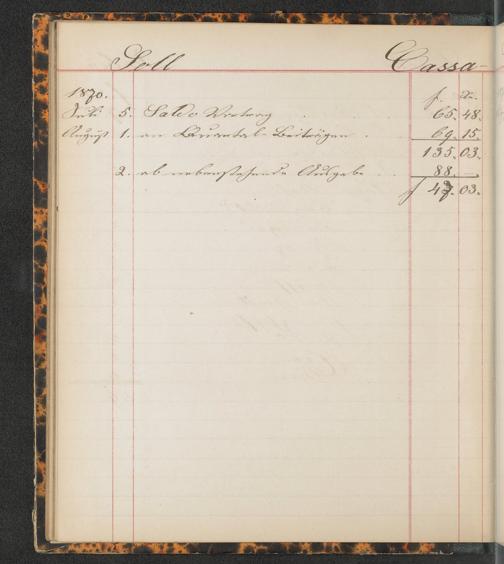 Soll Cassa-
1870. f. Kr.
Juli 5. Saldo Vortrag 65.48.
August 1. an Quartal-Beiträgen 69.15.
135.03.
2. ab nebenstehende Ausgabe 88.—
f 47.03.